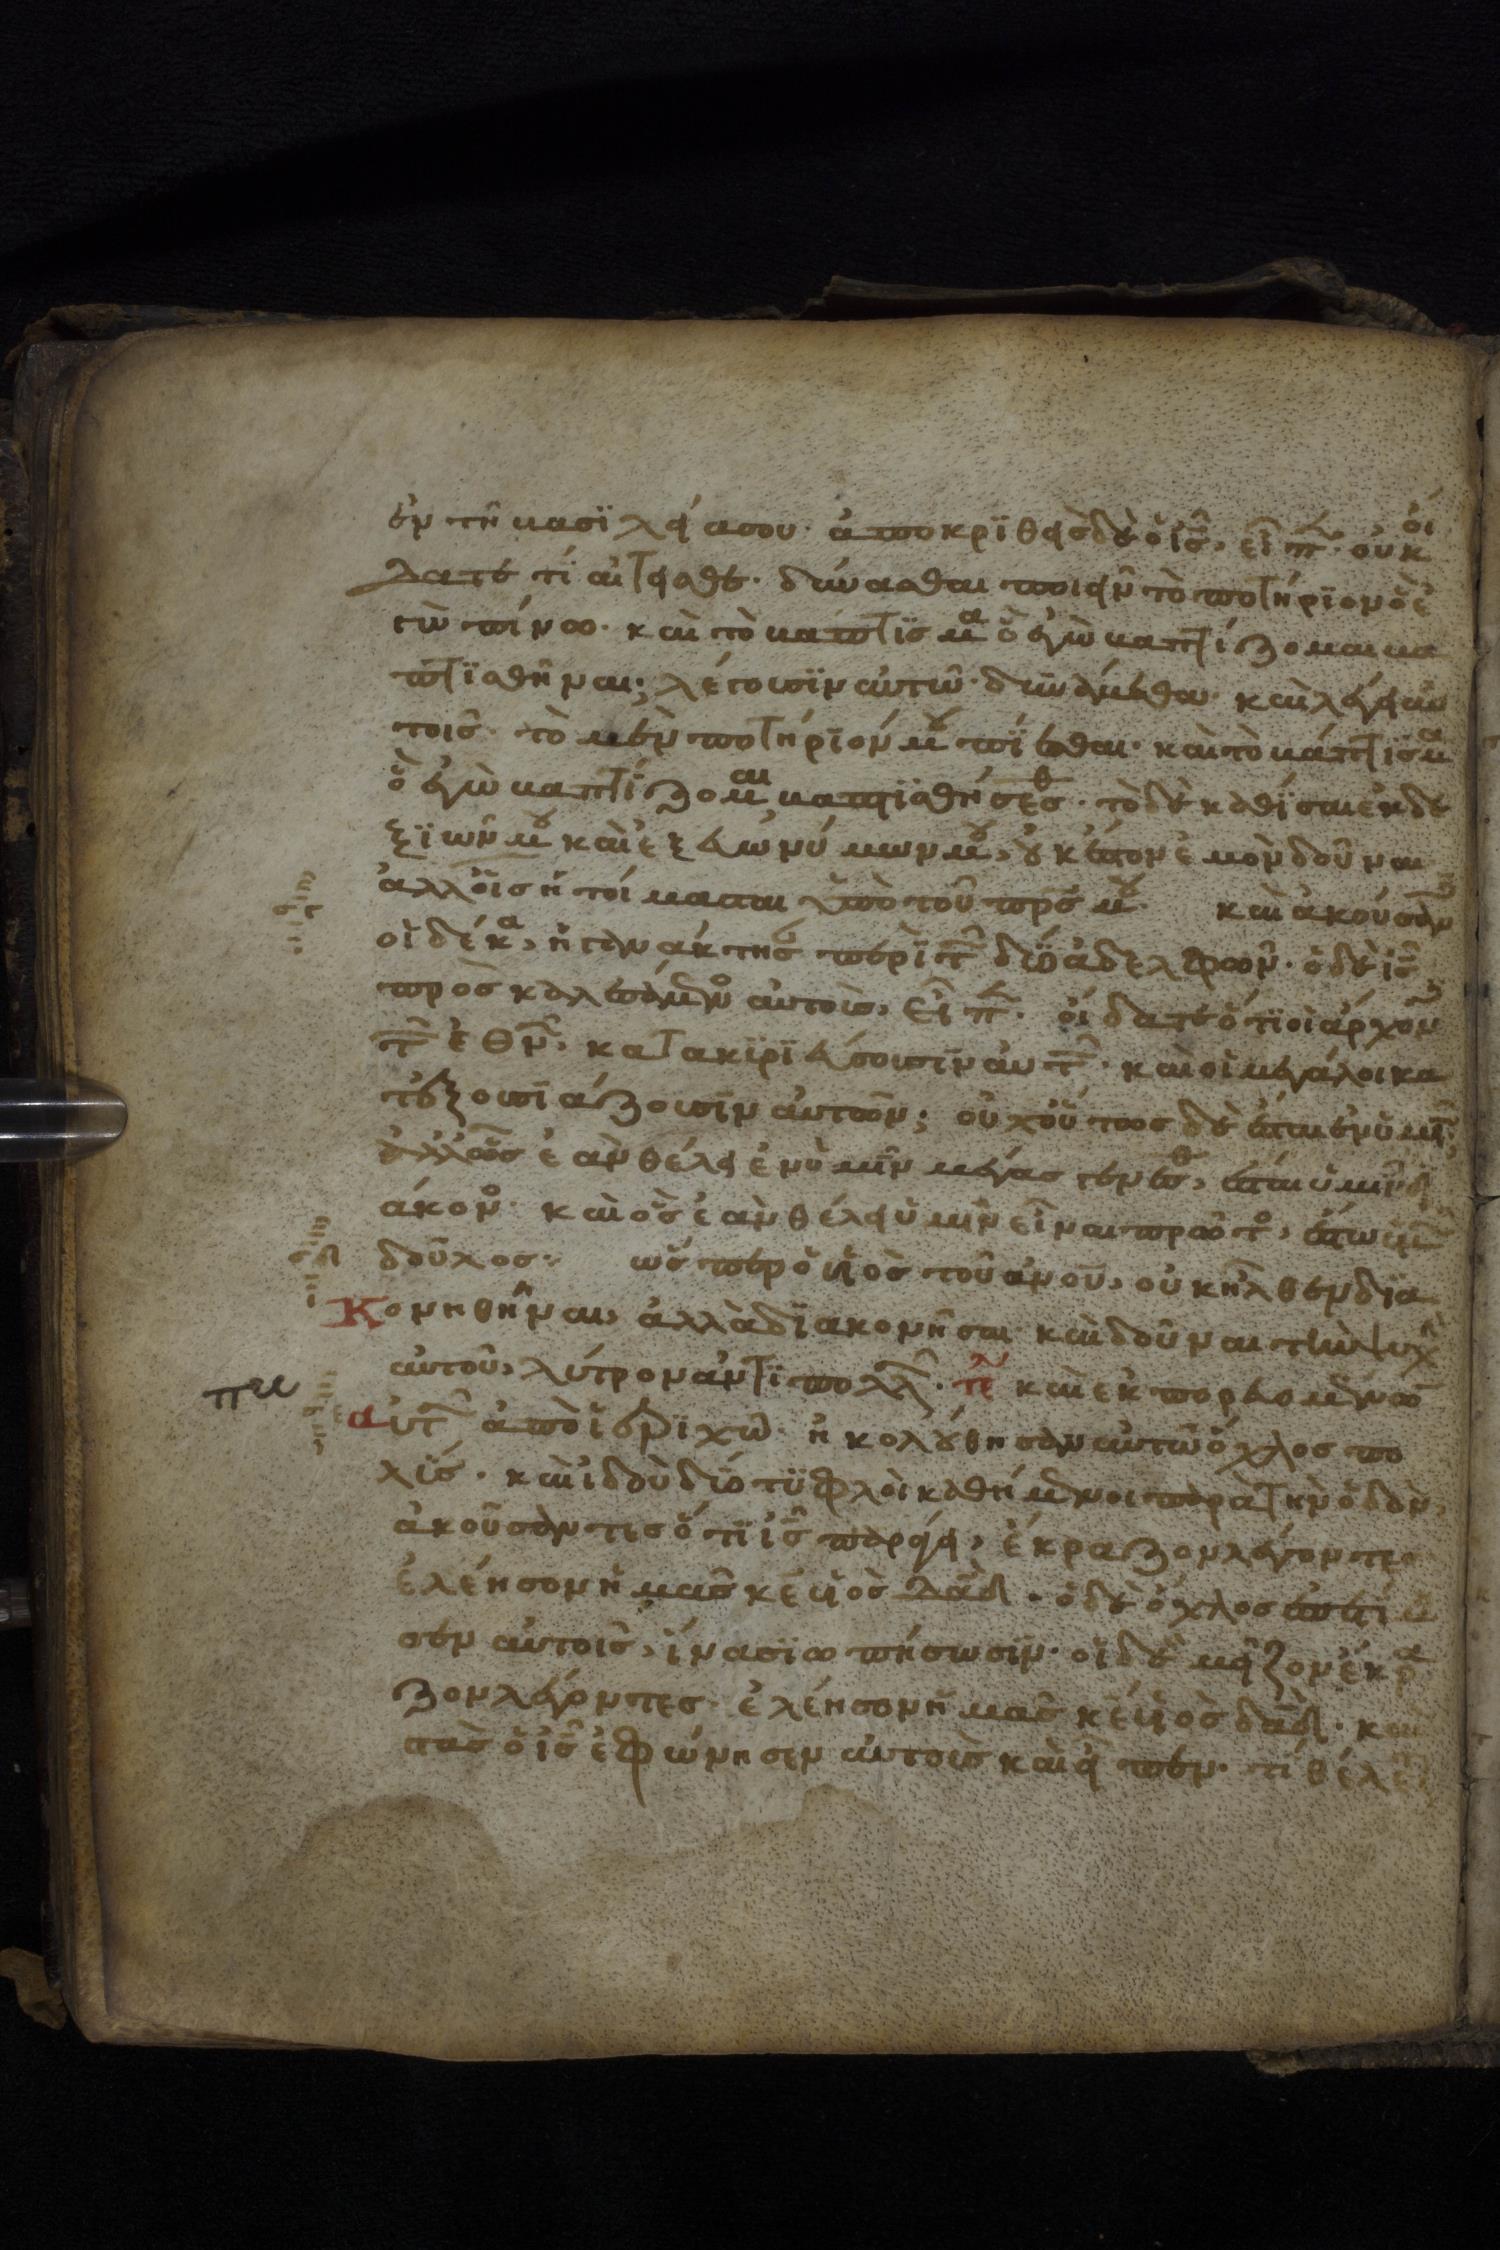 ἐν τῆ βασϊλεία σου· ἀποκρϊθεὶς δὲ ὁ ἰς̑, εἶπ̑· οὐκ οἴ
δατε τί αἰτεῖσθε· δύνασθαι πιεῖν τὸ ποτήριον ὃ ἐ
γὼ πίνω· καὶ τὸ βάπτϊσμα ὃ ἐγὼ βαπτίζομαι βα
πτϊσθῆναι; λέγουσϊν αὐτῶ· δυνάμεθα· καὶ λέγει αὐ
τοῖς· τὸ μὲν ποτήρϊόν μου πίεσθαι· καὶ τὸ βάπτϊσμα
ὃ ἐγὼ βαπτίζομαι βαπτϊσθήσεσθ· τὸ δὲ καθίσαι ἐκ δε
ξϊῶν μου καὶ ἐξ εὐωνύμων μου, οὐκ ἔστιν ἐμὸν δοῦναι
ἀλλ' οἷς ἡτοίμασται ὑπὸ τοῦ πρς μου· καὶ ἀκούσαν
οἱ δέκα, ἠγανάκτησ περὶ τ̑ δύο ἀδελφῶν· ὁ δὲ ἰς̑
προσκαλεσάμενο αὐτοὺς, εἶπ̑· οἴδατε ὅτϊ οἱ ἄρχον
τ̑ ἐθν̑, κατακϋριεύουσιν αὐτ̑· καὶ οἱ μεγάλοι κα
τεξουσϊάζουσϊν αὐτῶν; οὐχ οὕτως δὲ ἔσται ἐν ὑμῖν·
ἀλλ' ὃς ἐὰν θέλει ἐν ὑμῖν μέγας γενέσθ, ἔσται ὑμῶν δϊ
άκον· καὶ ὃς ἐὰν θέλει ὑμῖν εἶναι πρῶτο, ἔστω ὑμ̑
δοῦλος· ὥσπερ ὁ υἱὸς τοῦ ἀνου, οὐκ ἦλθεν δϊα
κονηθῆναι, ἀλλὰ δϊακονῆσαι· καὶ δοῦναι τὴν ψυχ̑
αὐτοῦ, λύτρον ἀντϊ πολλ̑· τε καὶ ἐκπορευομένω
αὐτ̑ ἀπὸ ἱερϊχῶ· ἠκολούθησαν αὐτῶ ὄχλος πο
λύς· καὶ ἰδοὺ δύο τϋφλοὶ καθήμενοι παρὰ τὴν ὁδὸν,
ἀκούσαντες ὅτϊ ἰς̑ παράγει, ἔκραζον λέγοντες
ἐλέησον ἡμᾶς κε υἱὸς δαδ· ὁ δὲ ὄχλος ἐπετί
σεν αὐτοῖς, ἵνα σϊωπήσωσϊν· οἱ δὲ μεῖζον ἔκρα
ζον λέγοντες· ἐλέησον ἡμᾶς κε υἱὸς δαδ· καὶ
στὰς ὁ ἰς̑ ἐφώνησεν αὐτοὺς καὶ εἶπεν· τί θέλε